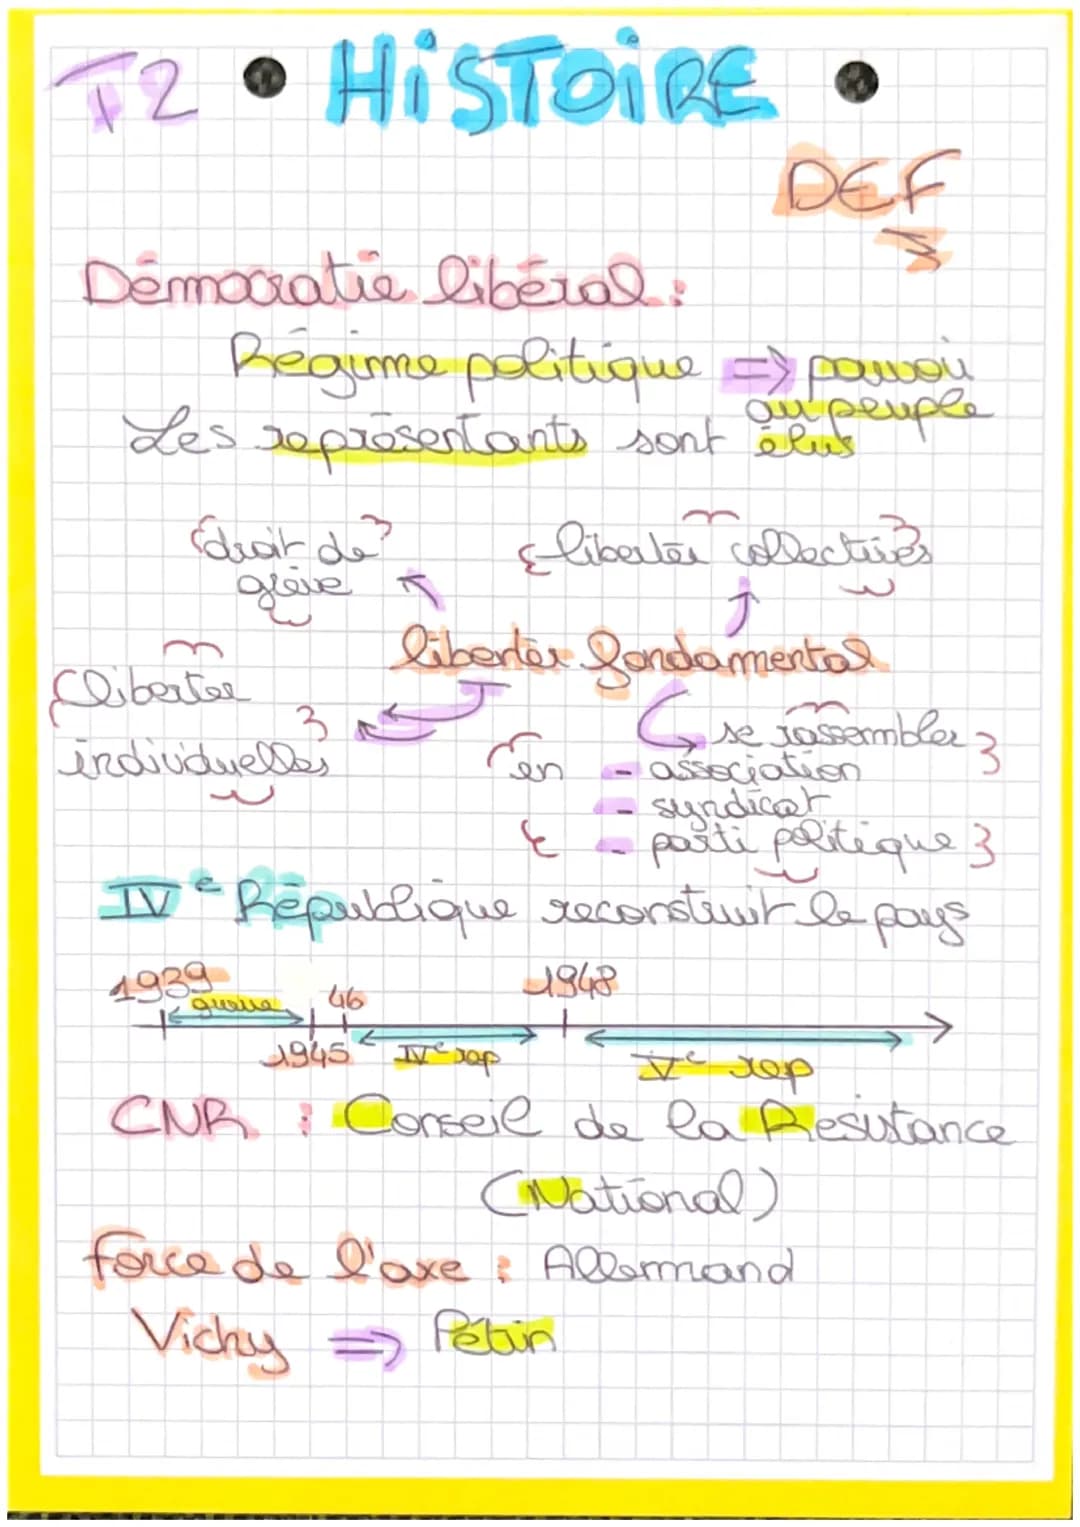 T2 • HiSTOiRE •
DEF
Démocratie libéral :
Régime politique => pouvoir
au peuple
Les représentants sont élus
{droit de}
grève
{libertés collectives}
libertés fondamental
{libertés
individuelles}
se rassembler}
{en - association
- syndicat
{ - parti politique}
IVe République reconstruit le pays
1939 guerre 46 1948
1945 IVe rep Ve rep
CNR : Conseil de la Resistance
(National)
Force de l'axe : Allemand
Vichy => Pétin